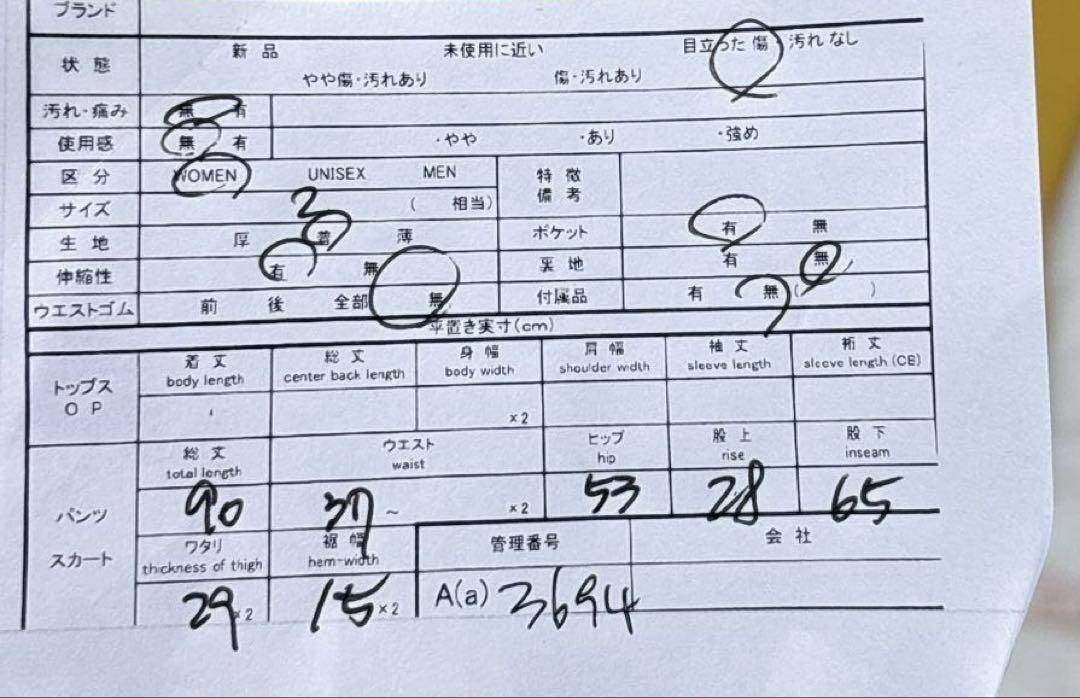 ブランド
状態 新品 未使用に近い 目立った傷・汚れなし
やや傷・汚れあり 傷・汚れあり
汚れ・痛み 無 有
使用感 無 有 ・やや ・あり ・強め
区分 WOMEN UNISEX MEN 特徴 備考
サイズ 3 ( 相当)
生地 厚 普 薄 ポケット 有 無
伸縮性 有 無 裏地 有 無
ウエストゴム 前 後 全部 無 付属品 有 無 ( )
平置き実寸(cm)
トップス OP
着丈 総丈 身幅 肩幅 袖丈 裄丈
body length center back length body width shoulder width sleeve length sleeve length (CE)
×2
パンツ スカート
総丈 ウエスト ヒップ 股上 股下
total length waist hip rise inseam
90 37 ~ ×2 53 28 65
ワタリ 裾幅 管理番号 会社
thickness of thigh hem-width
29 ×2 15 ×2 A(a) 3694